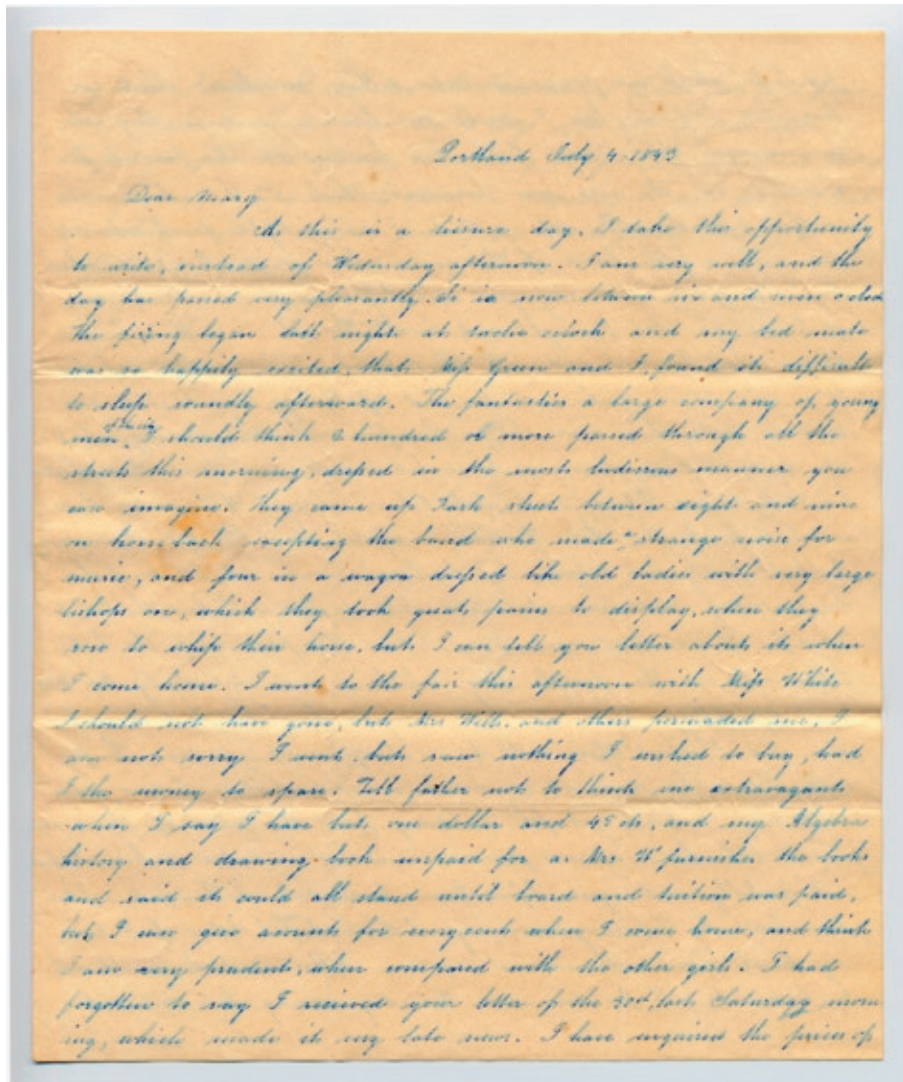 Portland July 4 1843
Dear Mary
As this is a liesure day, I take this opportunity
to write, instead of Wedensday afternoon. I am very well, and the
day has passed very pleasantly. It is now between six and seven o clock
the firing began last night at twelve oclock and my bed mate
was so happily excited, that Miss Green and I, found it difficult
to sleep soundly afterward. The fantastics a large company of young
men, I should think a hundred or more passed through all the
streets this morning, dressed in the most ludicrous manner you
can imagine. They came up Park street between eight and nine
on horseback excepting the band who made a strange noise for
music, and four in a wagon dressed like old ladies with very large
bishops on, which they took great pains to display, when they
rose to whip their horse, but I can tell you better about it when
I come home. I went to the fair this afternoon with Miss White
I should not have gone, but Mrs Wills, and others persuaded me, I
am not sorry I went, but saw nothing I wished to buy, had
I the money to spare. Tell father not to think me extravagant
when I say I have but one dollar and cts, and my Algebra
history and drawing book unpaid for as Mrs W furnishes the books
and said it could all stand until board and tuition was paid,
but I can give acounts for every cent when I come home, and think
I am very prudent, when compared with the other girls. I had
forgotten to say I recieved your letter of the last Saturday morn
ing, which made it very late news. I have enquired the prices of